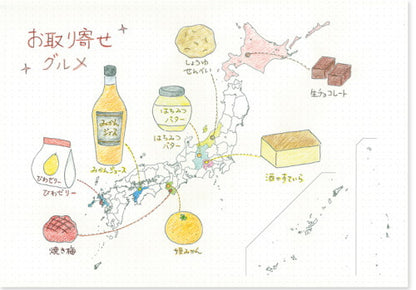 お取り寄せ
グルメ
しょうゆ
せんべい
生チョコレート
みかん
ジュース
みかんジュース
はちみつ
バター
はちみつ
バター
びわゼリー
びわゼリー
焼き梅